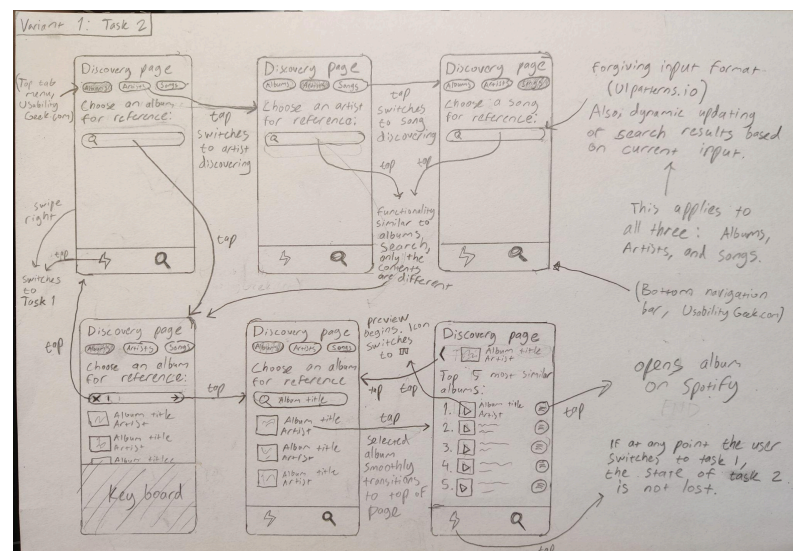 Variant 1: Task 2
(Top tab
menu,
Usability
Geek.com)
Discovery page
Albums Artists Songs
Choose an album
for reference:
tap
switches
to artist
discovering
Discovery page
Albums Artists Songs
Choose an artist
for reference:
tap
switches
to song
discovering
Discovery page
Albums Artists Songs
Choose a song
for reference:
Forgiving input format
(UIpatterns.io)
Also, dynamic updating
of search results based
on current input.
This applies to
all three: Albums,
Artists, and Songs.
(Bottom navigation
bar, UsabilityGeek.com)
swipe
right
tap
switches
to
Task 1
tap
tap
tap
Functionality
similar to
albums,
search,
only the
contents
are different
tap
Discovery page
Albums Artists Songs
Choose an album
for reference:
Album title
Artist
Album title
Artist
Album title
Keyboard
tap
Discovery page
Albums Artists Songs
Choose an album
for reference
Album title
Album title
Artist
Album title
Artist
Album title
Artist
preview
begins. Icon
switches
to
tap
tap
tap
Selected
album
smoothly
transitions
to top of
page
Discovery page
Album title
Artist
Top 5 most similar
albums:
1. Album title
Artist
2.
3.
4.
5.
tap
opens album
on Spotify
If at any point the user
switches to task 1,
the state of task 2
is not lost.
tap